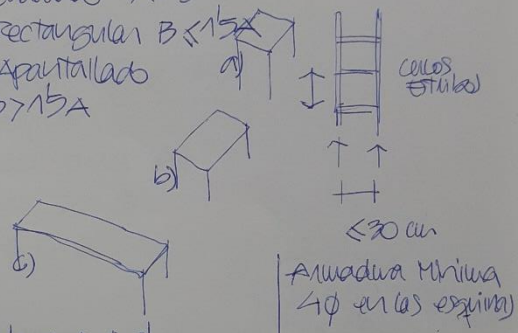 Rectangular B ≤ 1'5A
Apantallado
B > 1'5A
a)
b)
c)
cercos
estribos
≤ 30 cm
Armadura Mínima
4ϕ en las esquinas